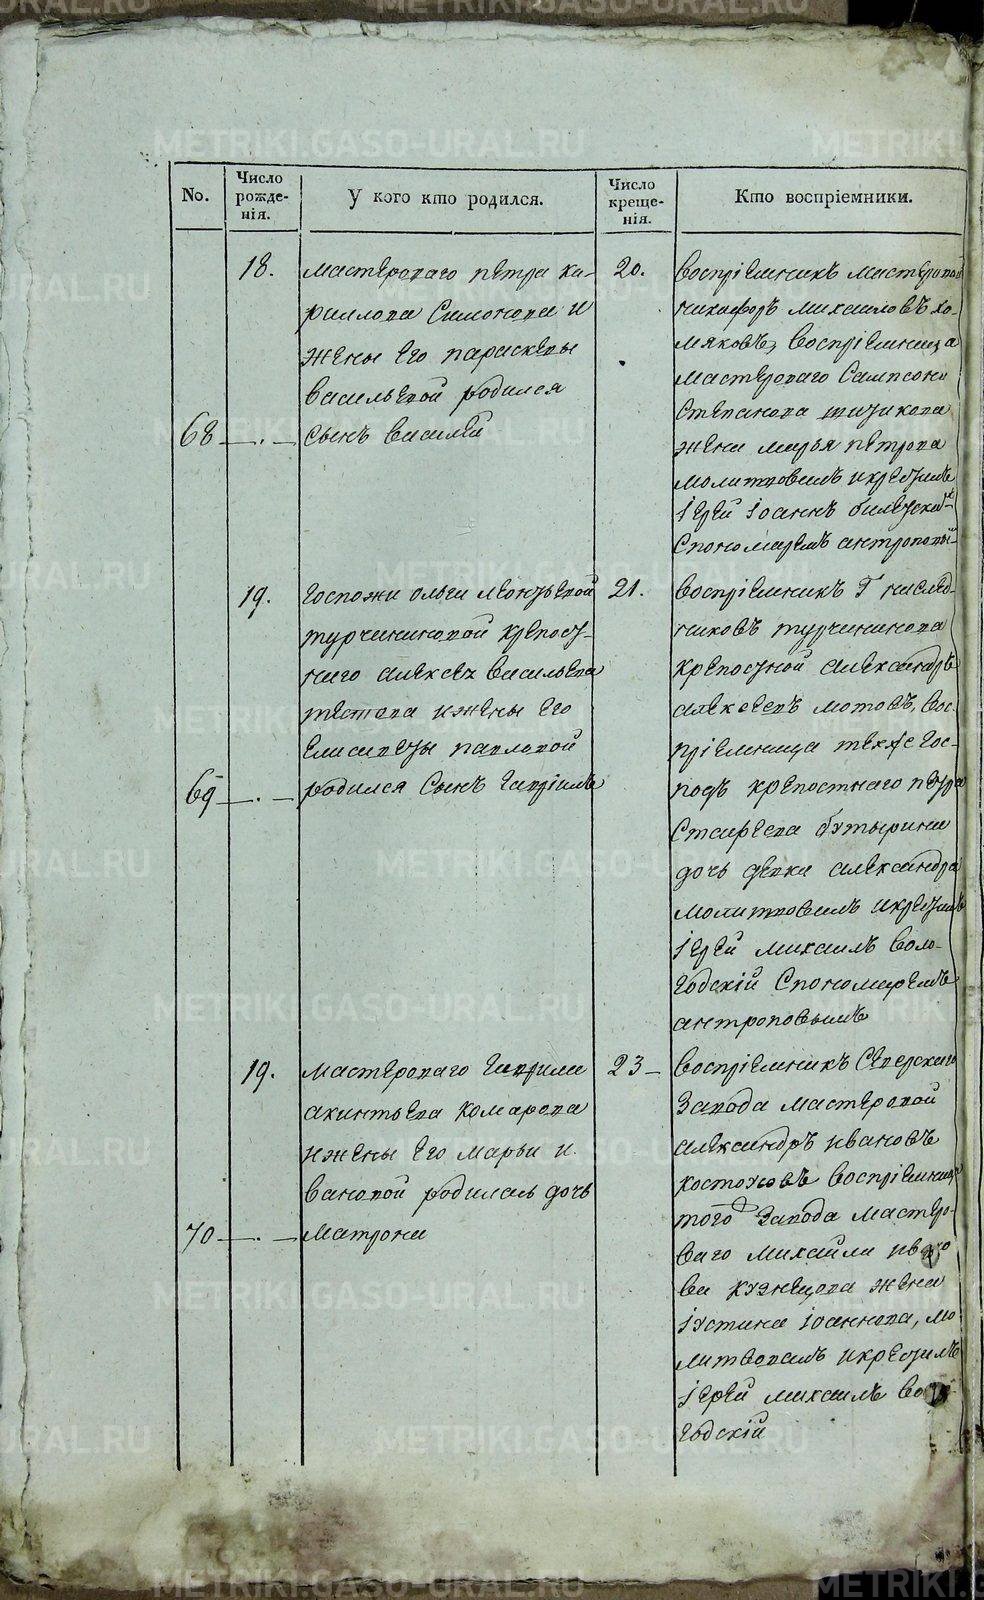 METRIKI.GASO-URAL.RU
No.
Число рожде- нія.
У кого кто родился.
Число креще- нія.
Кто воспріемники.
18.
мастероваго петра ки-
риллова Симонова и
жены его параскевы
васильевой родился
68 сынъ василей
20.
воспріемникъ мастеровой
никифоръ михаиловъ хо-
мяковъ, воспріемница
мастероваго Сампсона
Степанова
жена марья петрова
молитвовалъ и крестилъ
іерей іоаннъ
Спономаремъ антроповы
19.
Госпожи ольги леонтьевой
турчаниновой крепост-
наго алексея васильева
и жены его
елисаветы павловой
69 родился Сынъ гавріилъ
21.
воспріемникъ Г наслед-
никовъ турчанинова
крепостной александръ
алексеевъ мотовъ, вос-
пріемница техже гос-
подъ крепостнаго петра
бутырина
дочь девка александра
молитвовалъ и крестилъ
іерей михаилъ воло-
годскій Спономаремъ
антроповымъ
19.
мастероваго гаврила
акинтьева комарова
и жены его марьи и-
вановой родилась дочь
70 матрона
23
воспріемникъ Северскаго
Завода мастеровой
александръ ивановъ
воспріемница
того Завода мастеро-
ваго михайла ивано-
ва кузнецова жена
іустина іоаннова, мо-
литвовалъ и крестилъ
іерей михаилъ воло-
годскій